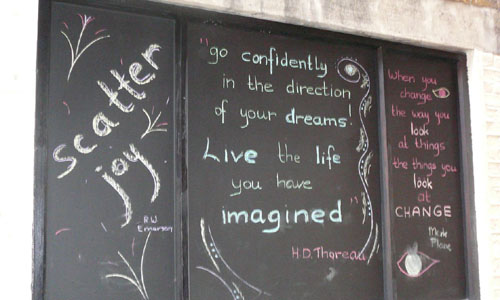 scatter
joy
R.W
Emerson
"go confidently
in the direction
of your dreams!
Live the life
you have
imagined"
H.D. Thoreau
When you
change
the way you
look
at things
the things you
look
at
CHANGE